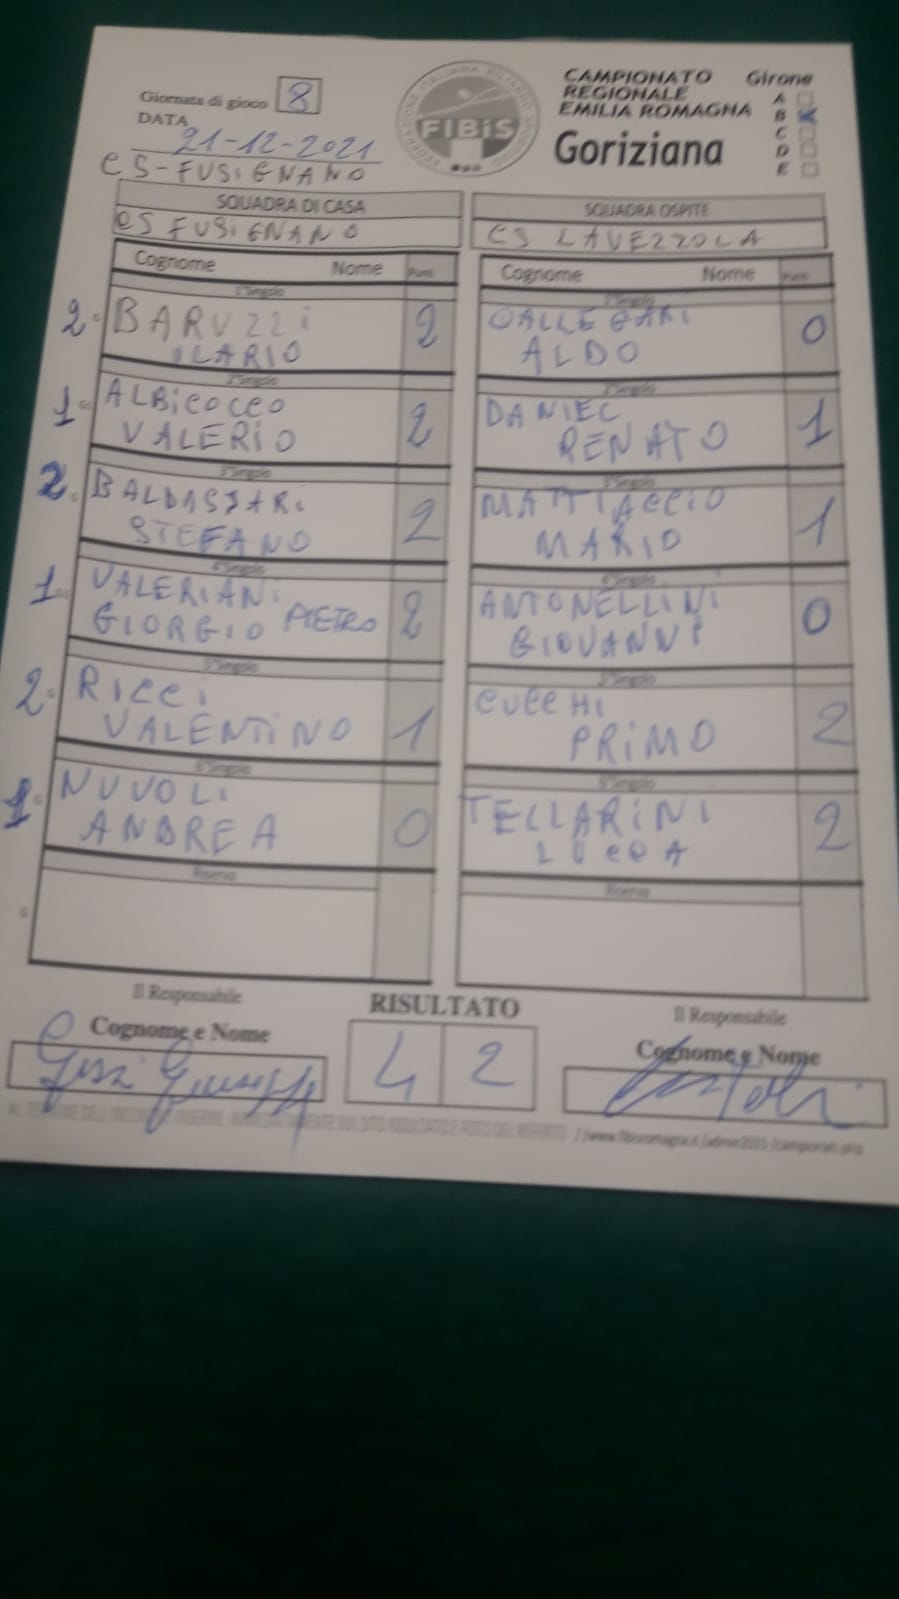 Giornata di gioco 8
DATA
21-12-2021
CS-FUSIGNANO
FIBiS
CAMPIONATO
REGIONALE
EMILIA ROMAGNA
Goriziana
Girone
A
B
C
D
E
SQUADRA DI CASA
CS FUSIGNANO
Cognome Nome Punti
1°Singolo
2. BARUZZI
ILARIO 2
2°Singolo
1. ALBICOCCO
VALERIO 2
3°Singolo
2. BALDASSARI
STEFANO 2
4°Singolo
1. VALERIANI
GIORGIO PIETRO 2
5°Singolo
2. RICCI
VALENTINO 1
6°Singolo
NUVOLI
ANDREA 0
Riserva
SQUADRA OSPITE
CS LAVEZZOLA
Cognome Nome Punti
1°Singolo
CALLEGARI
ALDO 0
2°Singolo
DANIEL
RENATO 1
3°Singolo
MATTIACCIO
MARIO 1
4°Singolo
ANTONELLINI
GIOVANNI 0
5°Singolo
CUCCHI
PRIMO 2
6°Singolo
TELLARINI
LUCCA 2
Riserva
Il Responsabile
Cognome e Nome
RISULTATO
4 2
Il Responsabile
Cognome e Nome
AL TERMINE DELL'INCONTRO INSERIRE IMMEDIATAMENTE SUL SITO RISULTATO E FOTO DEL REFERTO